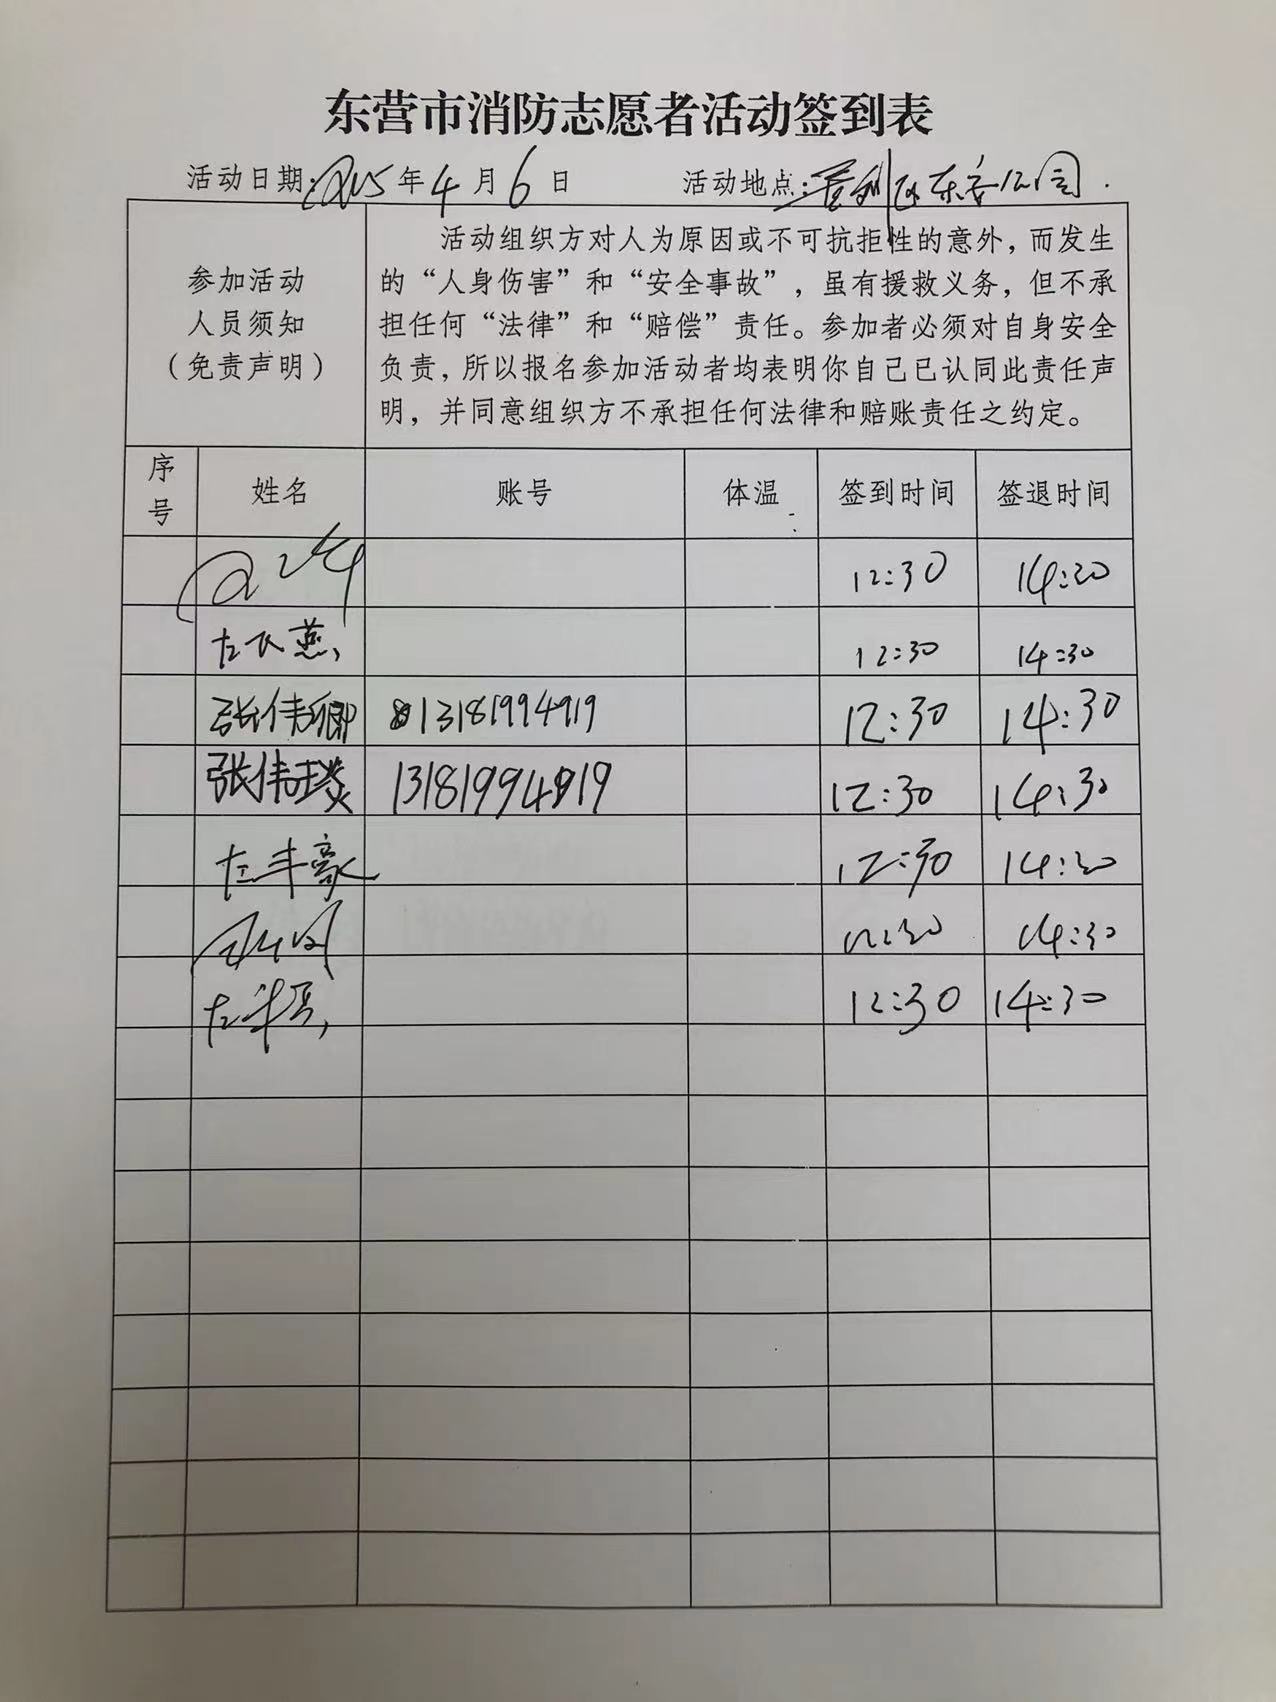 东营市消防志愿者活动签到表
活动日期:2025年4月6日 活动地点:垦利区
参加活动
人员须知
（免责声明）
活动组织方对人为原因或不可抗拒性的意外，而发生
的“人身伤害”和“安全事故”，虽有援救义务，但不承
担任何“法律”和“赔偿”责任。参加者必须对自身安全
负责，所以报名参加活动者均表明你自己已认同此责任声
明，并同意组织方不承担任何法律和赔账责任之约定。
序号 姓名 账号 体温 签到时间 签退时间
12:30 14:30
左飞燕 12:30 14:30
张伟卿 13181994919 12:30 14:30
张伟琰 13181994919 12:30 14:30
左丰豪 12:30 14:30
12:30 14:30
12:30 14:30